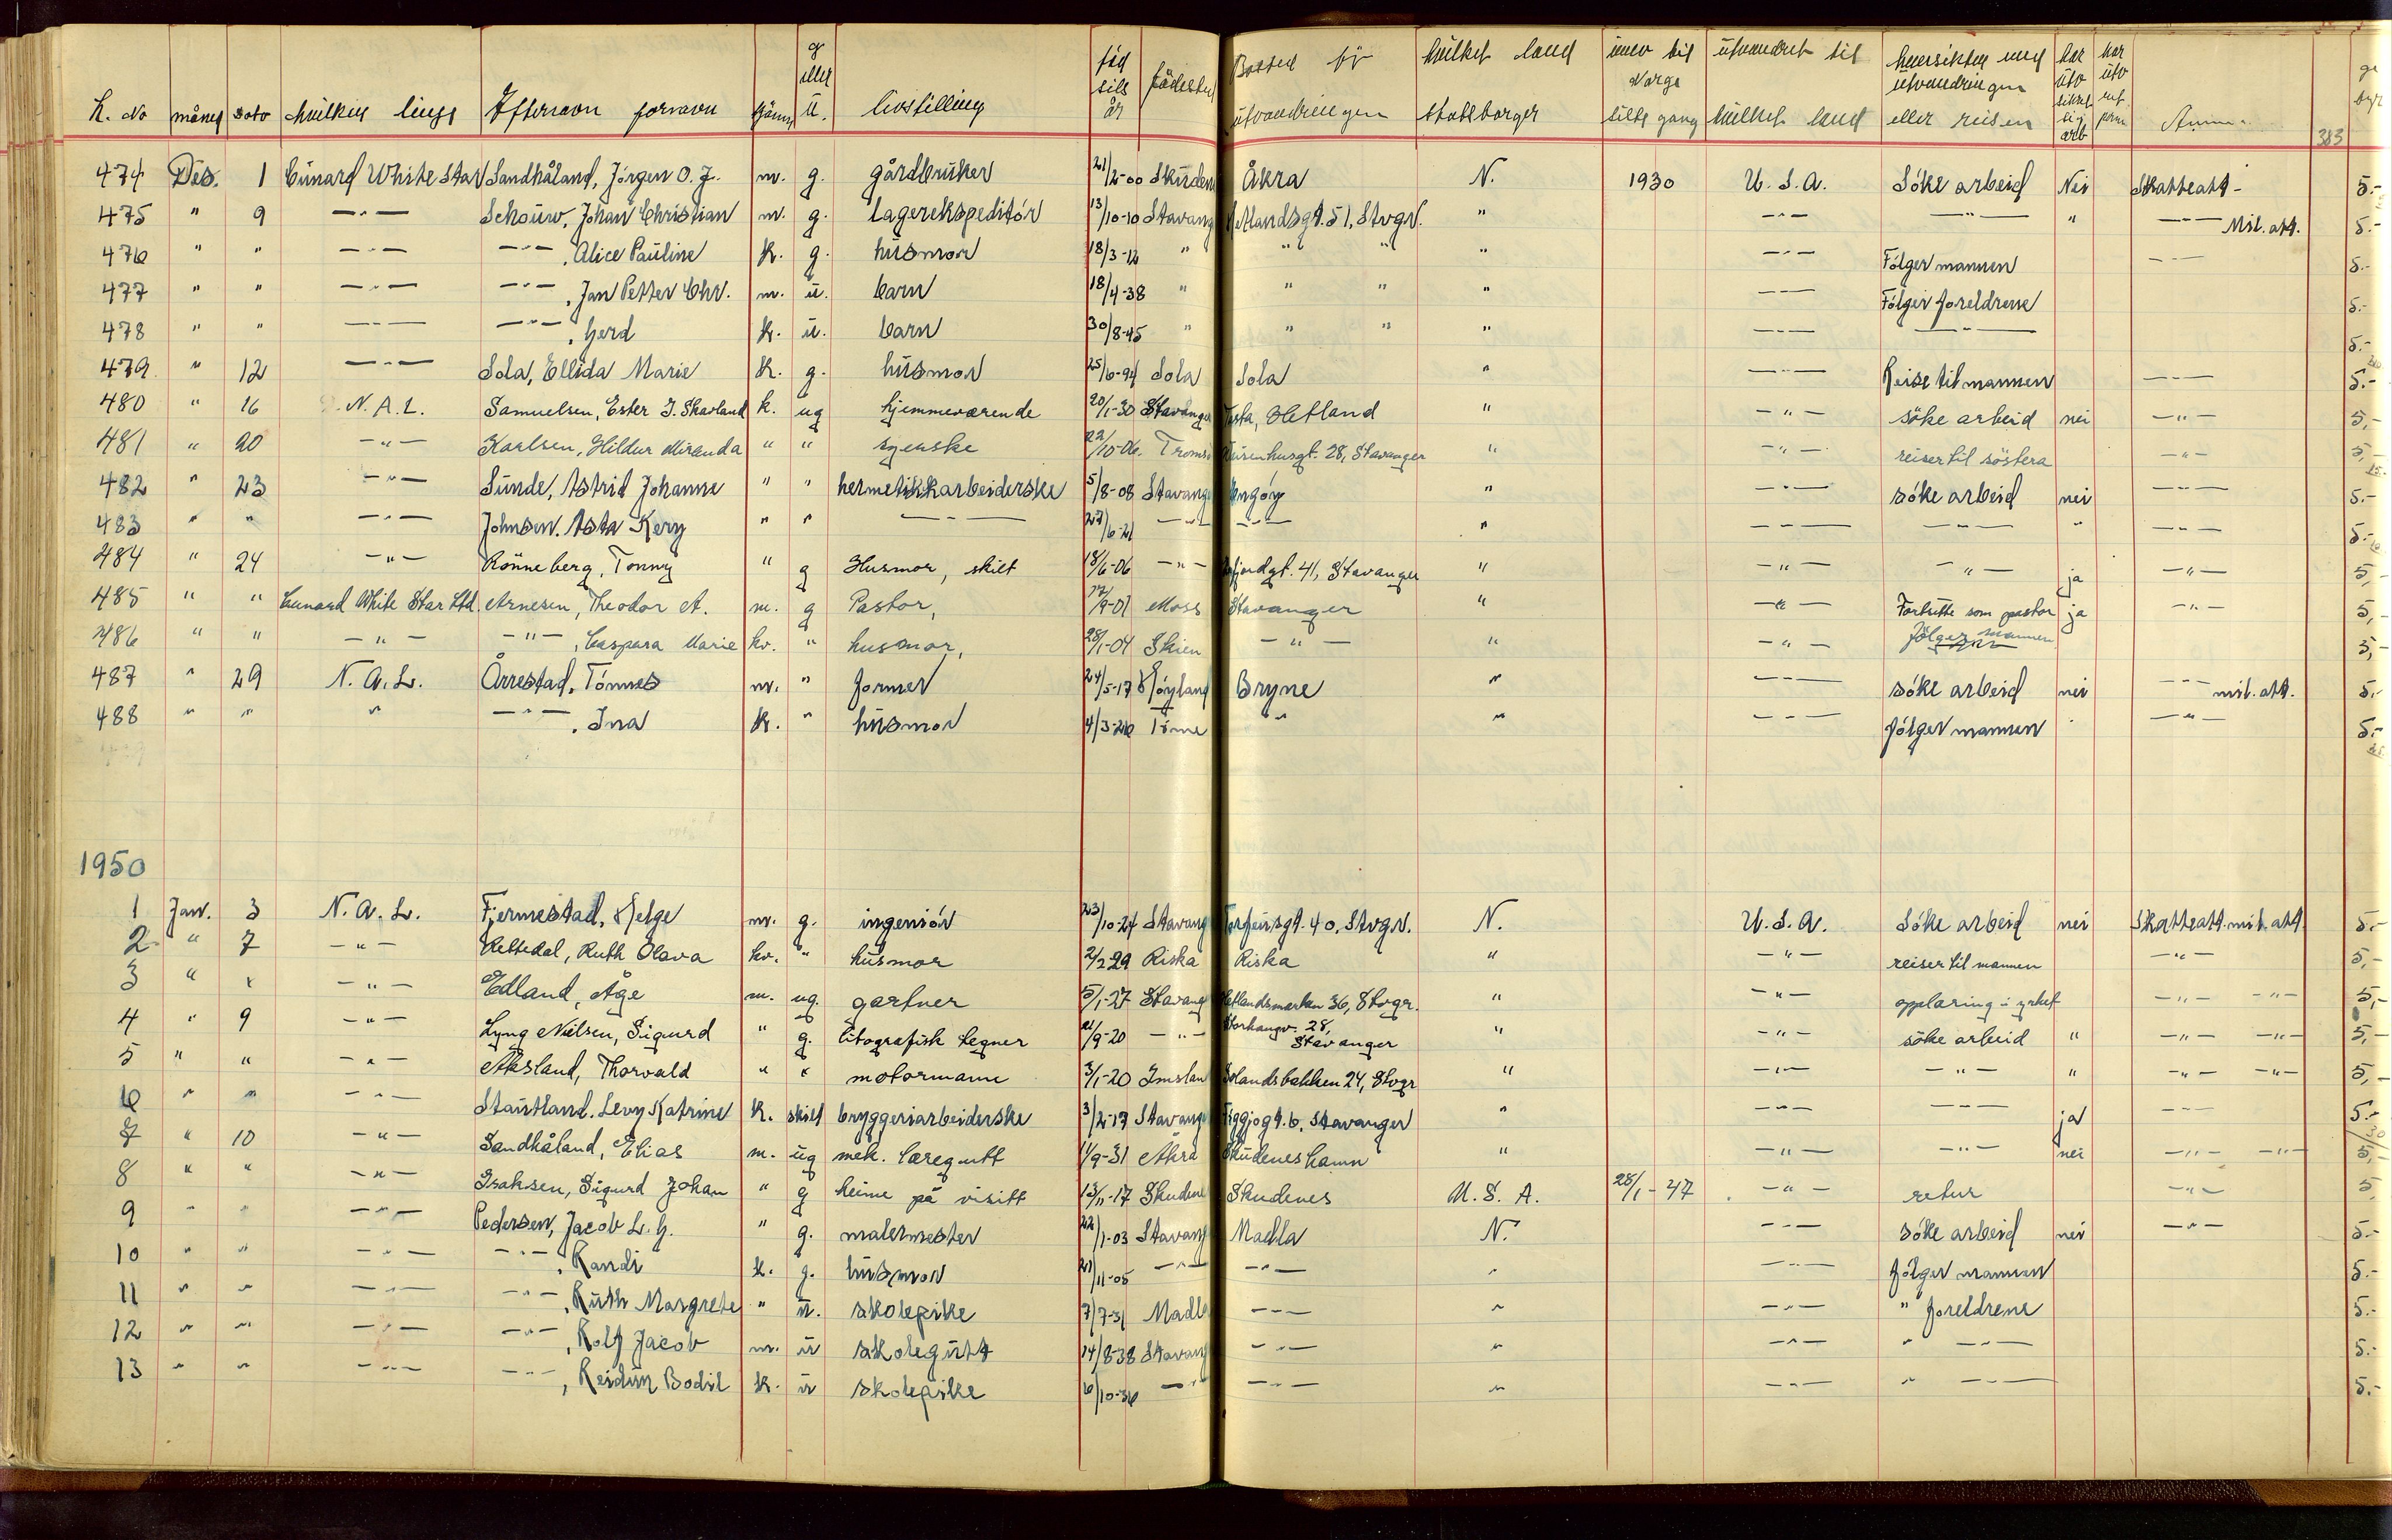 L. No måned dato hvilken linje Efternavn fornavn kjønn g eller u. livstilling fødsels år fødested Bosted før utvandringen hvilket land statsborger innv til Norge siste gang utvandret til hvilket land hensikten med utvandringen eller reisen har utv sikret sig arb har utv ret. Anm. 383
474 Des. 1 Cunard White Star Sandhåland, Jörgen O. J. m. g. gårdbruker 21/2-00 Skuden Åkra N. 1930 U.S.A. Söke arbeid Nei Skatteatt- 5.-
475 " 9 —"— Schouw, Johan Christian m. g. lagerekspeditör 13/10-10 Stavang Hetlandsgt. 51, Stvgr. " —"— —"— " —"— Mil. att. 5.-
476 " " —"— —"—, Alice Pauline k. g. husmor 18/3-12 " " " " —"— Fölger mannen —"— 5.-
477 " " —"— —"—, Jan Petter Chr. m. u. barn 18/4-38 " " " " —"— Fölger foreldrene 5.-
478 " " —"— —"—, Gerd k. u. barn 30/8-45 " " " " —"— —"— 5.-
479 " 12 —"— Sola, Ellida Marie k. g. husmor 25/6-94 Sola Sola " —"— Reise til mannen —"— 5.-
480 " 16 N.A.L. Samuelsen, Ester J. Skavland k. ug hjemmeværende 20/1-30 Stavanger Tasta, Hetland " —"— söke arbeid nei —"— 5,-
481 " 20 —"— Karlsen, Hildur Miranda " " syerske 22/10-06. Troms 28, Stavanger " —"— reiser til söstera —"— 5,-
482 " 23 —"— Sunde, Astrid Johanne " " hermetikkarbeiderske 5/8-08 Stavange " —"— söke arbeid nei —"— 5.-
483 " " —"— Johnsen, Asta Kery " " —"— 27/6-21 —"— —"— " —"— —"— " —"— 5.-
484 " 24 —"— Rönneberg, Tonny " g Husmor, skilt 18/6-06 —"— 41, Stavanger " —"— —"— ja —"— 5,-
485 " " Cunard White Star Ltd. Arnesen, Theodor A. m. g Pastor, 17/9-01 Moss Stavanger " —"— Fortsette som pastor ja —"— 5,-
486 " " —"— —"—, Caspara Marie kv. " husmor, 28/1-04 Skien —"— " —"— fölger mannen 5,-
487 " 29 N.A.L. Årrestad, Tönnes m. " former 24/5-17 Höyland Bryne " —"— söke arbeid nei —"— mil. att. 5.-
488 " " " —"—, Ina k. " husmor 4/3-26 Time " " —"— fölger mannen —"— 5.-
1950
1 Jan. 3 N.A.L. Fjermestad, Helge m. g. ingeniör 23/10-24 Stavang 40, Stvgr. N. U.S.A. Söke arbeid nei Skatteatt. mil. att. 5.-
2 " 7 —"— Reltedal, Ruth Olava kv. " husmor 2/2 29 Riska Riska " —"— reiser til mannen —"— 5,-
3 " " —"— Edland, Åge m. ug. gartner 5/1-27 Stavang Hetlandsmarken 36, Stvgr. " —"— opplæring i yrket —"— —"— 5,-
4 " 9 —"— Lyng Nielsen, Sigurd " g. litografisk tegner 21/9-20 —"— Storhaugv. 28, Stavanger " —"— söke arbeid " —"— —"— 5,-
5 " " —"— Aksland, Thorvald " " motormann 3/1-20 Imslan 24, Stvgr " —"— —"— " —"— —"— 5,-
6 " " —"— Stautland, Levy Katrine k. skilt bryggeriarbeiderske 3/2-17 Stavange Figgjogt. 6, Stavanger " —"— —"— ja —"— 5.-
7 " 10 —"— Sandhåland, Elias m. ug mek. læregutt 11/9-31 Åkra Skudeneshamn " —"— —"— nei —"— —"— 5,-
8 " " —"— Isaksen, Sigurd Johan " g heime på visitt 13/11-17 Skudene Skudenes U.S.A. 28/1-47 —"— retur —"— 5,
9 " " —"— Pedersen, Jacob L. G. " g. malermester 22/1-03 Stavang Madla N. —"— söke arbeid nei —"— 5.-
10 " " —"— —"—, Randi k. g. husmor 21/11-05 —"— —"— " —"— fölger mannen 5.-
11 " " —"— —"—, Ruth Margrete " u. skolepike 7/7-31 Madla —"— " —"— " foreldrene 5.-
12 " " —"— —"—, Rolf Jacob m. u skolegutt 14/8-38 Stavang —"— " —"— " —"— 5.-
13 " " —"— —"—, Reidun Bodil k. u skolepike 6/10-36 —"— —"— " —"— " —"— 5.-